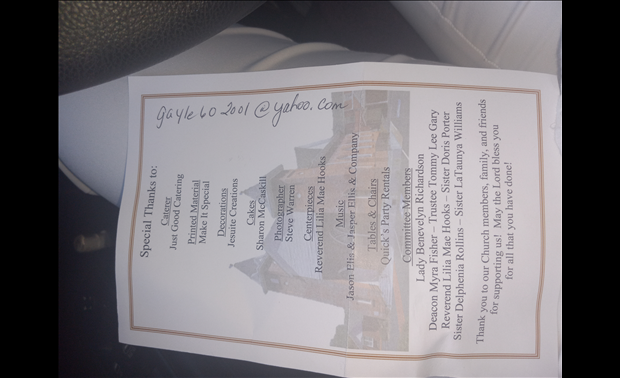 gayle602001@yahoo.com
Special Thanks to:
Caterer
Just Good Catering
Printed Material
Make It Special
Decorations
Jesuite Creations
Cakes
Sharon McCaskill
Photographer
Steve Warren
Centerpieces
Reverend Lilia Mae Hooks
Music
Jason Ellis & Jasper Ellis & Company
Tables & Chairs
Quick's Party Rentals
Committee Members
Lady Benevelyn Richardson
Deacon Myra Fisher – Trustee Tommy Lee Gary
Reverend Lilia Mae Hooks – Sister Doris Porter
Sister Delphenia Rollins – Sister LaTaunya Williams
Thank you to our Church members, family, and friends
for supporting us! May the Lord bless you
for all that you have done!